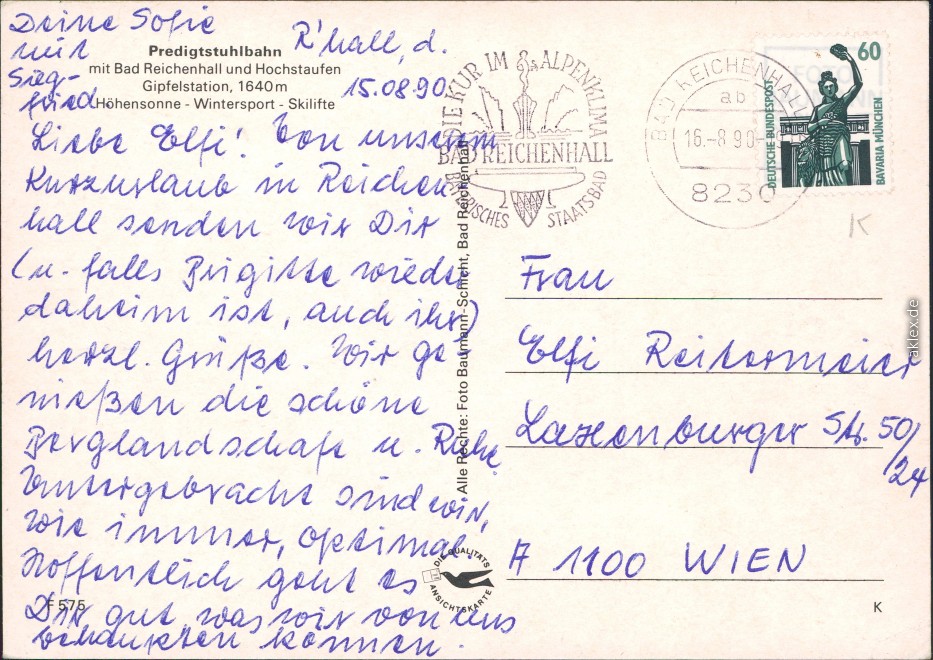 Predigtstuhlbahn
mit Bad Reichenhall und Hochstaufen
Gipfelstation, 1640 m
Höhensonne - Wintersport - Skilifte
R'hall, d.
15.08.90.
Liebe Elfi! Von unserem
Kurzurlaub in Reichen
hall senden wir Dir
(u. falls Brigitte wieder
daheim ist, auch ihr)
herzl. Grüße. Wir ge
nießen die schöne
Berglandschaft u. Ruhe.
Untergebracht sind wir,
wie immer, optimal.
Hoffentlich geht es
Dir gut, was wir von uns
behaupten können.
Deine Sofie
mit
Sieg-
fried
F 575
Alle Rechte: Foto Baumann-Schicht, Bad Reichenhall
DIE QUALITÄTS
ANSICHTSKARTE
DIE KUR IM ALPENKLIMA
BAD REICHENHALL
BAYERISCHES STAATSBAD
BAD REICHENHALL
ab
16.-8.90
8230
60
DEUTSCHE BUNDESPOST
BAVARIA MÜNCHEN
K
Frau
Elfi Reitermeier
Laxenburger Str. 50/
24
A 1100 WIEN
K
aklex.de